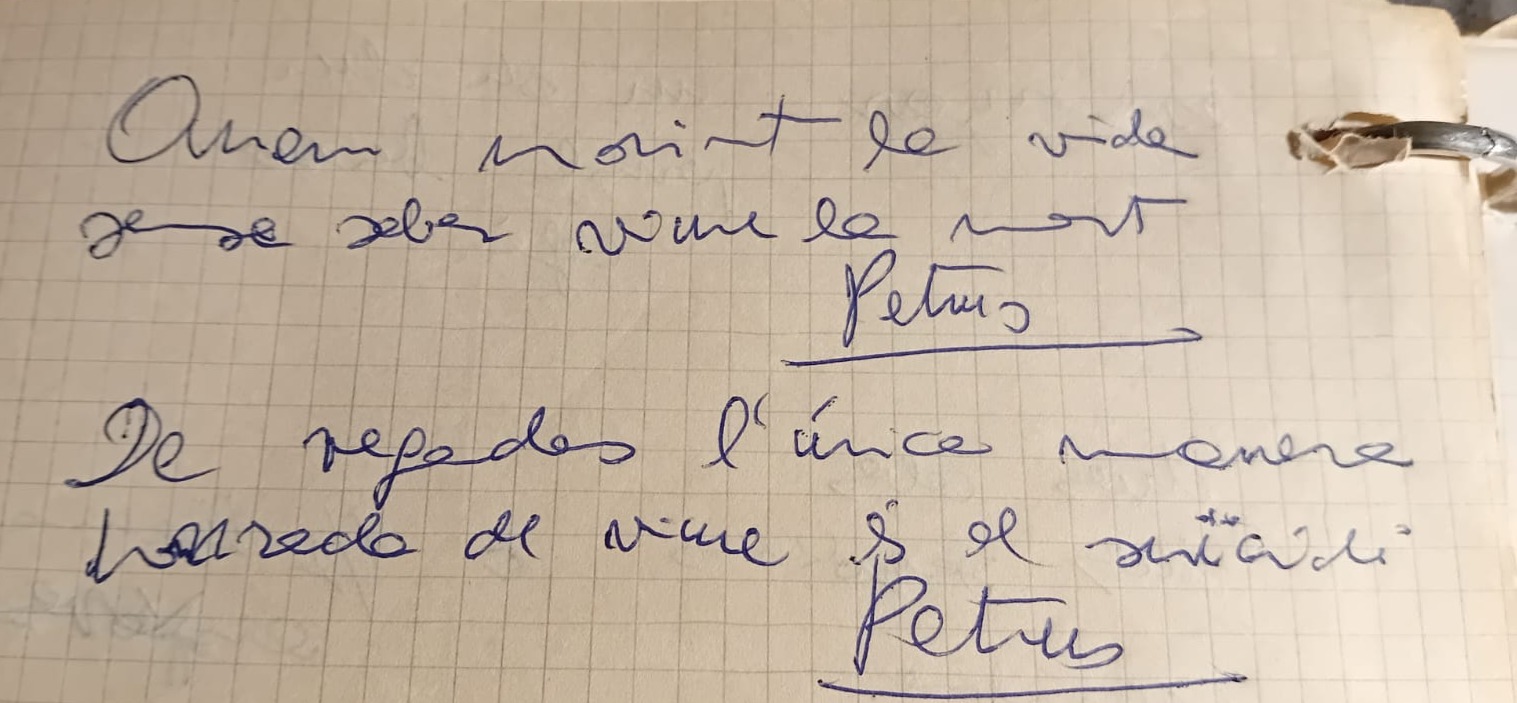 Anem morint la vida
sense saber viure la mort
Petrus
De vegades l'única manera
honrada de viure és el suïcidi
Petrus